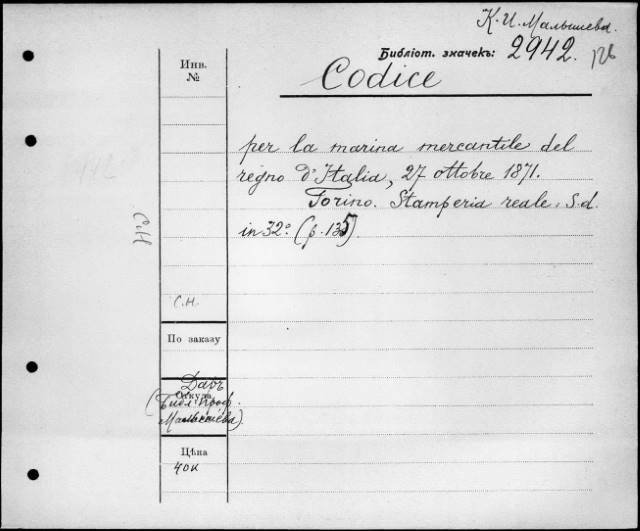 К. И. Малышева.
Библіот. значекъ: 2942.
Инв.
№
Codice
per la marina mercantile del
regno d'Italia, 27 ottobre 1871.
Torino. Stamperia reale. S.d.
in 32° (p. 135)
С.Н
С.Н.
По заказу
Даръ
Откуда
(Библ. проф.
Малышева)
Цѣна
40к